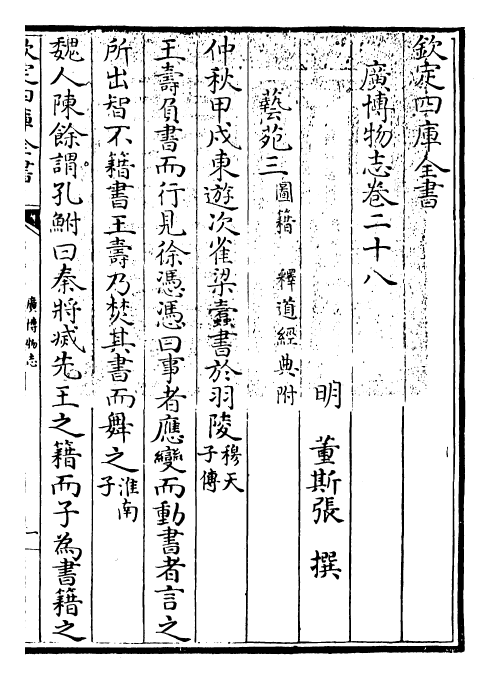 欽定四庫全書
廣博物志卷二十八
明　董斯張　撰
藝苑三 圖籍　釋道經典附
仲秋甲戌東遊次雀梁蠹書於羽陵 穆天子傳
王壽負書而行見徐馮馮曰事者應變而動書者言之
所出智不藉書王壽乃焚其書而舞之 淮南子
魏人陳餘謂孔鮒曰秦將滅先王之籍而子為書籍之
欽定四庫全書
廣博物志
一